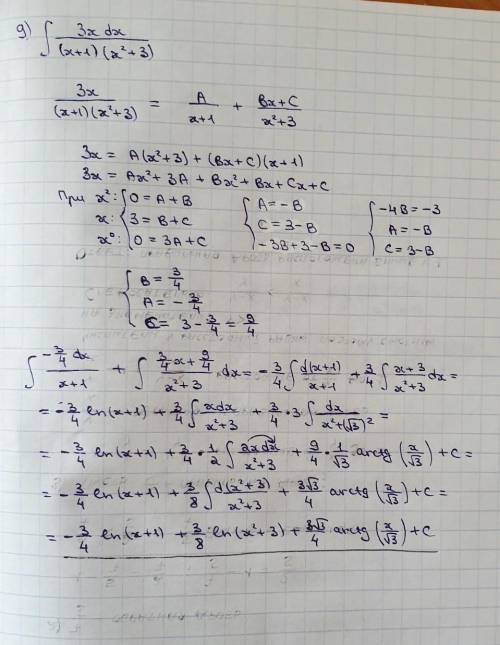 9) ∫ 3x dx / (x+1)(x²+3)
3x / (x+1)(x²+3) = A / x+1 + Bx+C / x²+3
3x = A(x²+3) + (Bx+C)(x+1)
3x = Ax² + 3A + Bx² + Bx + Cx + C
При x²: { 0 = A+B { A = -B { -4B = -3
x: { 3 = B+C { C = 3-B { A = -B
x⁰: { 0 = 3A+C { -3B+3-B=0 { C = 3-B
{ B = 3/4
{ A = -3/4
{ C = 3 - 3/4 = 9/4
∫ -3/4 dx / x+1 + ∫ 3/4 x + 9/4 / x²+3 dx = -3/4 ∫ d(x+1) / x+1 + 3/4 ∫ x+3 / x²+3 dx =
= -3/4 ln(x+1) + 3/4 ∫ xdx / x²+3 + 3/4 · 3 ∫ dx / x²+(√3)² =
= -3/4 ln(x+1) + 3/4 · 1/2 ∫ 2xdx / x²+3 + 9/4 · 1/√3 · arctg (x/√3) + C =
= -3/4 ln(x+1) + 3/8 ∫ d(x²+3) / x²+3 + 3√3/4 arctg (x/√3) + C =
= -3/4 ln(x+1) + 3/8 ln(x²+3) + 3√3/4 arctg (x/√3) + C